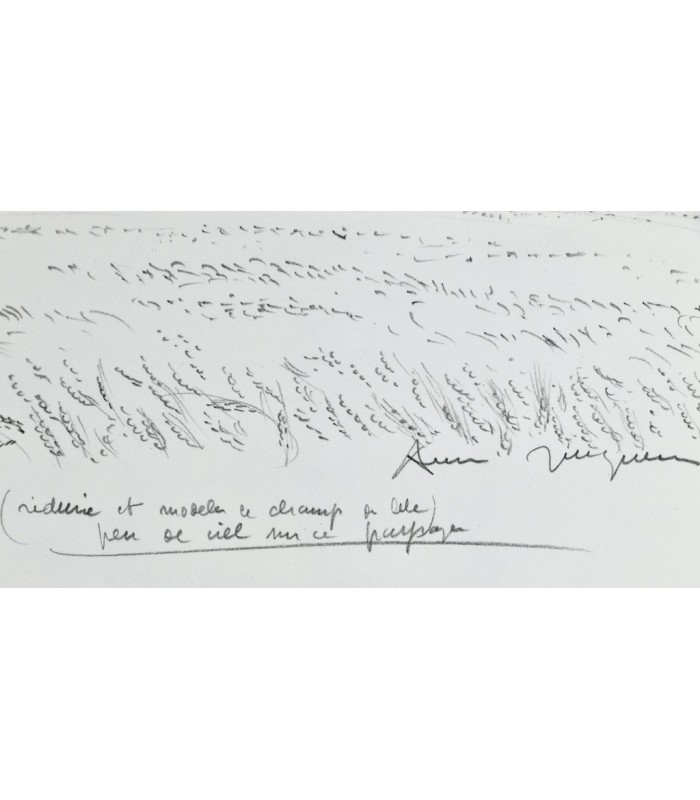 (réduire et modeler ce champ de blé)
peu de ciel sur ce paysage